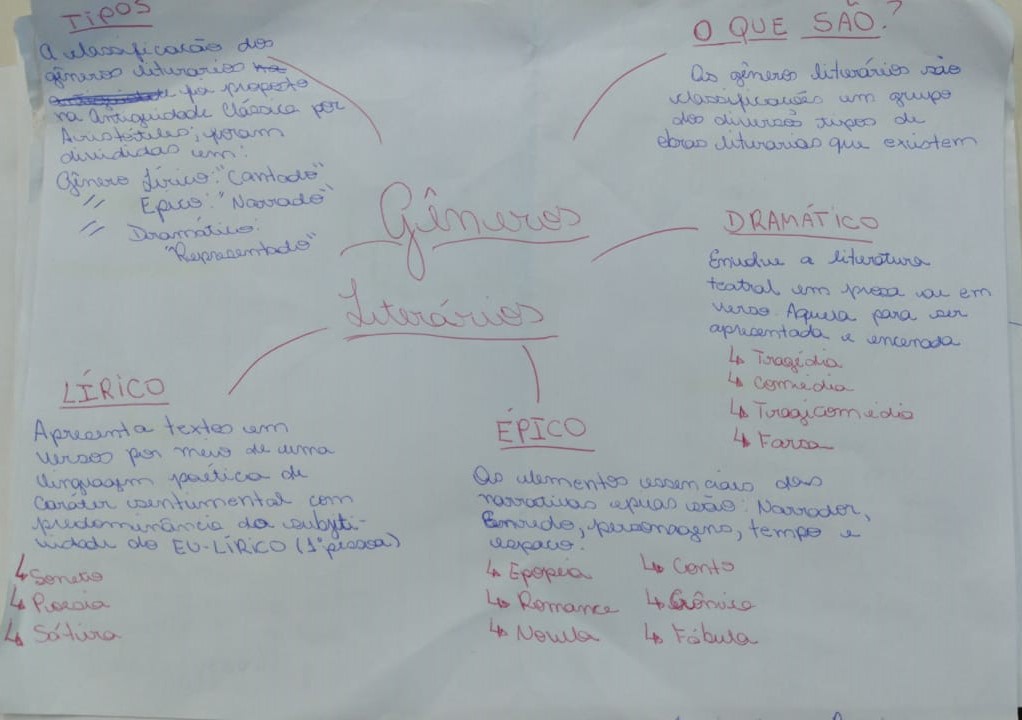 TIPOS
A classificação dos
gêneros literários na
foi proposto
na Antiguidade Clássica por
Aristóteles; foram
divididas em:
Gênero Lírico: "Cantado"
" Épico: "Narrado"
" Dramático:
"Representado"
O QUE SÃO?
Os gêneros literários são
classificações em grupo
dos diversos tipos de
obras literarias que existem
Gêneros
Literários
DRAMÁTICO
Envolve a literatura
teatral em prosa ou em
verso. Aquela para ser
apresentada e encenada
↳ Tragédia
↳ Comédia
↳ Tragicomédia
↳ Farsa
LÍRICO
Apresenta textos em
versos por meio de uma
linguagem poética de
caráter sentimental com
predominância da subjeti-
vidade do EU-LÍRICO (1ª pessoa)
↳ Soneto
↳ Poesia
↳ Sátira
ÉPICO
Os elementos essenciais das
narrativas epicas são: Narrador,
Enredo, personagens, tempo e
espaço.
↳ Epopeia
↳ Romance
↳ Novela
↳ Conto
↳ Crônica
↳ Fábula